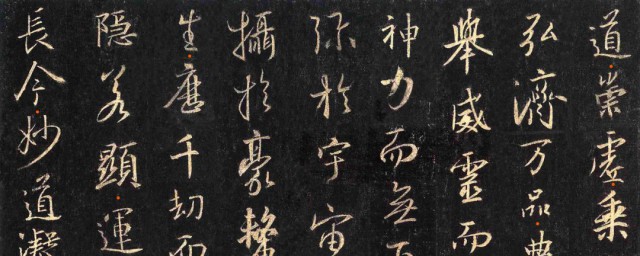 道崇虛乘
弘濟万品典
舉威靈而
神力而無下
弥於宇宙
攝於豪釐
生歷千劫而
隱若顯運
長今妙道凝